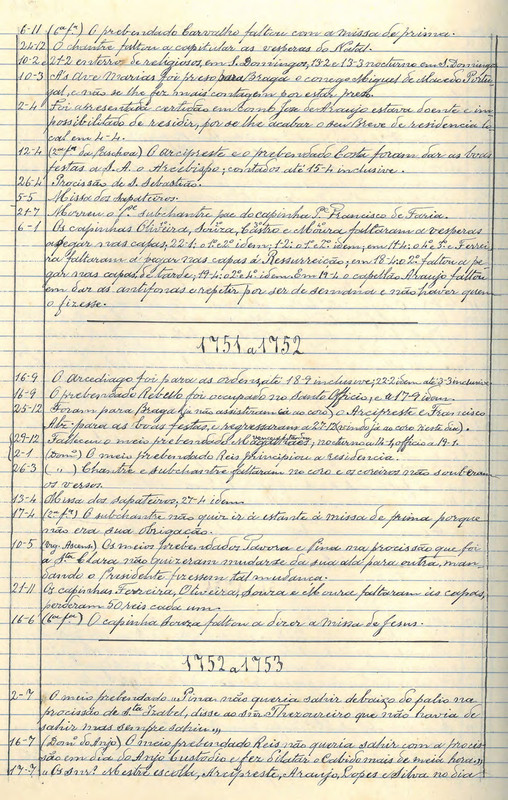 6-11 (6ª fª) O prebendado Carvalho faltou com a missa de prima.
24-12 O chantre faltou a capitular as vesperas do Natal.
10-2 e 21-2 enterros de religiosos, em S. Domingos, 13-2 e 13-3 nocturno em S. Domingos
10-3 Ás Ave Marias foi preso para Braga o conego Miguel de Macedo Portu-
gal, e não se lhe fez mais contagem por estar preso.
2-4 Foi apresentada certidão em como José de Araujo estava doente e im-
possibilitado de residir, por se lhe acabar o seu Breve de residencia lo-
cal em 4-4.
12-4 (2ª fª da Paschoa) O arcipreste e o prebendado Costa foram dar as boas
festas a S. A. o Arcebispo; contados até 15-4 inclusive.
26-4 Procissão de S. Sebastião.
5-5 Missa dos sapateiros.
21-7 Morreu o subchantre pae do capinha Pe Francisco de Faria.
6-1 Os capinhas Oliveira, Souza, Castro e Moura faltaram a vesperas
a pegar nas capas; 22-1: o 1º e 2º idem; 1-2: o 1º e 2º idem; em 11-4: o 4º 3º e Ferrei-
ra faltaram a pegar nas capas á Ressurreição; em 18-4 o 2º faltou a pe-
gar nas capas, de tarde; 19-4: o 2º e 4º idem. Em 19-4 o capellão Araujo faltou
em dar as antifonas e repetir por ser de semana e não haver quem
o fizesse.
1751 a 1752
16-9 O arcediago foi para as ordens, até 18-9 inclusive; 22-2 idem até 3-3 inclusive
16-9 O prebendado Rebello foi occupado no Santo Officio, e a 17-9 idem.
25-12 Foram para Braga (já não assistiram cá ao coro) o Arcipreste e Francisco
para as boas festas, e regressaram a 27-12 (vindo já ao coro neste dia).
29-12 Falleceu o meio prebendado Magalhães, nocturno 18-1, officio a 19-1.
2-1 (Domº) O meio prebendado Reis principiou a residencia.
26-3 ( " ) Chantre e subchantre faltaram no coro e os coreiros não souberam
os versos.
13-4 Missa dos sapateiros; 27-4 idem
17-4 (2ª fª) O subchantre não quiz ir á estante á missa de prima porque
não era sua obrigação.
10-5 (Vig. Ascens) Os meios prebendados Tavora e Pina na procissão que foi
a Stª Clara não quizeram mudar-se da sua ala para outra, man-
dando o Presidente fizessem tal mudança.
21-11 Os capinhas Ferreira, Oliveira, Souza e Moura faltaram ás capas,
perderam 50 reis cada um.
16-6 (6ª fª) O capinha Souza faltou a dizer a missa de Jesus.
1752 a 1753
2-7 O meio prebendado "Pina não queria sahir debaixo do palio na
procissão de Sta Izabel, disse ao snr Thezoureiro que não havia de
sahir mas sempre sahiu"
16-7 (Domº do Anjo) O meio prebendado Reis não queria sahir com a procis-
são em dia do Anjo Custodio e fez dilatar o Cabido mais de meia hora"
17-7 "Os snrs Mestre escolla, Arcipreste, Araujo, Lopes e Silva no dia